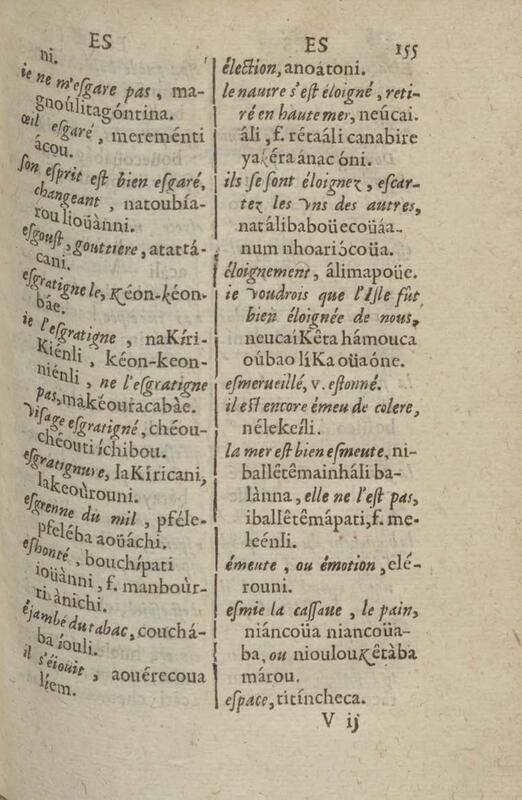 ES
ni.
ie ne m'eſgare pas, ma-
gnoúlitagóntina.
œil eſgaré, mereménti
ácou.
ſon eſprit eſt bien eſgaré,
changeant, natoubía-
rou lioüànni.
eſgouſt, gouttiere, atattá-
cani.
eſgratigne le, Kéon-kéon-
báe.
ie l'eſgratigne, naKíri-
Kiénli, kéon-keon-
niénli, ne l'eſgratigne
pas, makéouracabàe.
Viſage eſgratigné, chéou-
chéouti íchibou.
eſgratignure, laKíricani,
lakeoùrouni.
eſgrenne du mil, pféle-
pfeléba aoüáchi.
eſhonté, bouchípati
ioüànni, f. manboùr-
ri ànichi.
éjambé du tabac, couchá-
ba íouli.
il s'éiouit, aouérecoua
líem.
ES 155
élection, anoátoni.
le nauire s'eſt éloigné, reti-
ré en haute mer, neúcai-
áli, f. rétaáli canabire
yakéra ánac óni.
ils ſe ſont éloignez, eſcar-
tez les vns des autres,
natálibaboüecoüáa-
num nhoariócoüa.
éloignement, álimapoüe.
ie voudrois que l'Iſle fût
bien éloignée de nous,
neucaíKêta hámouca
oúbao líKa oüaóne.
eſmerueillé, v. eſtonné.
il eſt encore émeu de colere,
nélekeíli.
la mer eſt bien eſmeute, ni-
ballêtêmainháli ba-
lànna, elle ne l'eſt pas,
iballêtêmápati, f. me-
leénli.
émeute, ou émotion, elé-
rouni.
eſmie la caſſaue, le pain,
niáncoüa niancoüa-
ba, ou nioulouKêtàba
márou.
eſpace, titíncheca.
V ij